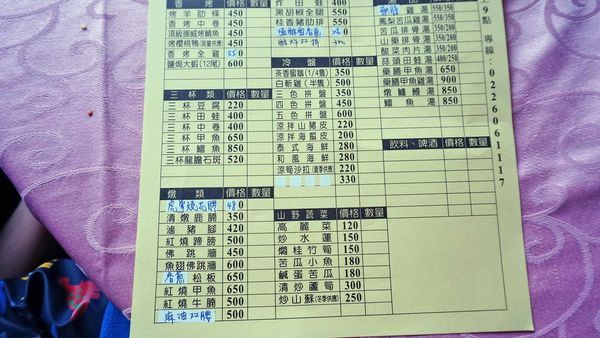 香烤 價格 數量
烤羊肋條 450
香烤中卷 450
頂級挪威烤鯖魚 450
烤櫻桃鴨(限量供應) 650
香烤全雞 550
鹽焗大蝦(12尾) 600
三杯類 價格 數量
三杯豆腐 220
三杯田蛙 400
三杯中卷 400
三杯甲魚 650
三杯鱸魚 850
三杯龍膽石斑 520
燉類 價格 數量
480
清燉鹿腩 350
滷豬腳 420
紅燒蹄膀 500
佛跳牆 450
魚翅佛跳牆 600
松板 650
紅燒甲魚 650
紅燒牛腩 500
麻油双腰 500
炸田蛙 400
黑胡椒金腿 550
桂香豬肋排 550
冷盤 價格 數量
茶香蜜鵝(1/4隻) 350
白斬雞(半隻) 500
三色拼盤 350
四色拼盤 450
五色拼盤 600
涼拌山豬皮 220
涼拌海蜇皮 200
泰式海鮮 280
和風海鮮 280
涼筍沙拉(夏季供應) 220
330
山野蔬菜 價格 數量
高麗菜 120
炒水蓮 150
燜桂竹筍 150
苦瓜小魚 180
鹹蛋苦瓜 180
清炒蘆筍 300
炒山蘇(冬季供應) 250
雞湯 550/350
鳳梨苦瓜雞湯 550/350
苦瓜排骨湯
山藥排骨湯
酸菜肉片湯
蒜頭田蛙湯 400
藥膳甲魚湯 650
藥膳甲魚雞湯 900
燉鱸鰻湯 850
鱸魚湯 850
飲料、啤酒 價格 數量
點專線:0226061117